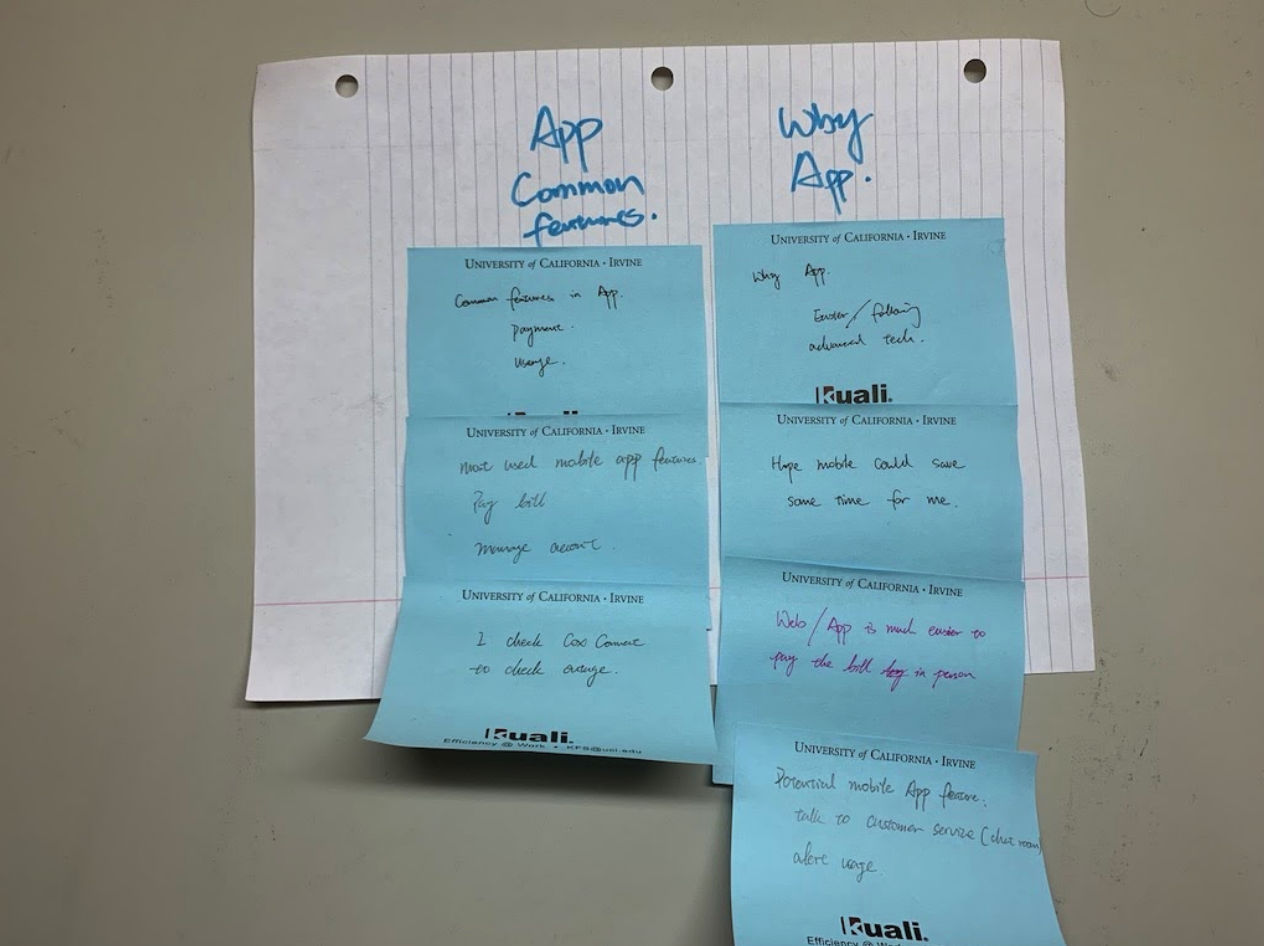 App
Common
features.
UNIVERSITY of CALIFORNIA · IRVINE
Common features in App.
payment.
usage.
UNIVERSITY of CALIFORNIA · IRVINE
most used mobile app features.
Pay bill
manage account.
UNIVERSITY of CALIFORNIA · IRVINE
I check Cox Connect
to check outage.
Kuali.
Efficiency @ Work • KFS@uci.edu
Why
App.
UNIVERSITY of CALIFORNIA · IRVINE
Why App.
Easier/following
advanced tech.
Kuali.
UNIVERSITY of CALIFORNIA · IRVINE
Hope mobile could save
some time for me.
UNIVERSITY of CALIFORNIA · IRVINE
Web/App is much easier to
pay the bill in person
UNIVERSITY of CALIFORNIA · IRVINE
Potential mobile App feature:
talk to customer service (chat room)
alert usage.
Kuali.
Efficiency @